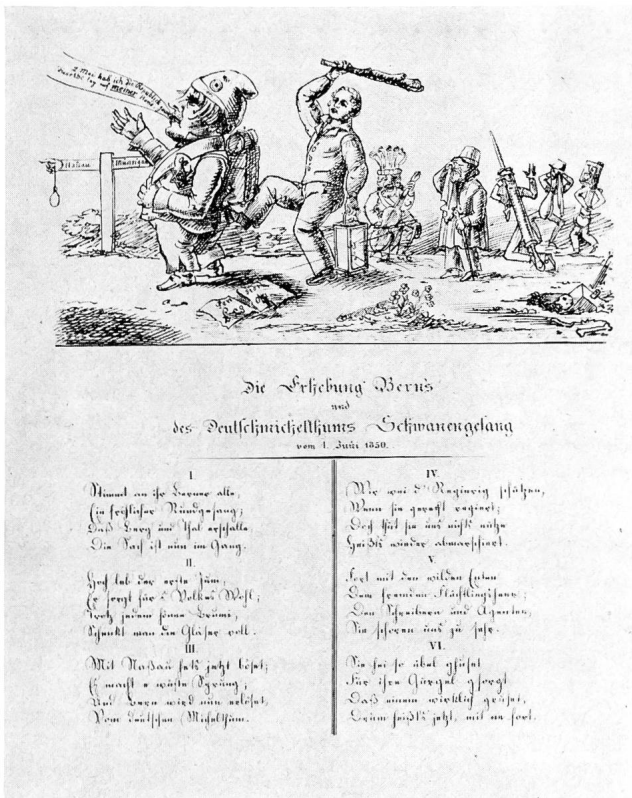 2 Mal hab ich die Republik
lag auf meiner Hand
Nassau
Die Erhebung Bern's
und
des Deutschmichelthums Schwanengesang
vom 1. Juni 1850.
I.
Stimmet an ihr Berner alle,
Ein festlicher Rundgesang;
Daß Berg und Thal erschalle,
Die Sach ist nun im Gang.
II.
Hoch leb der erste Juni,
Er sorgt für s'Volkes Wohl;
Trotz jedem Brumi,
Schenkt man die Gläser voll.
III.
Mit Naßau hets jetzt böset;
Er macht e wüste Sprüng;
Und Bern wird nun erlöset,
Vom deutschen Michelthum.
IV.
Mir wei d'Regierig schätzen,
Wenn sie gerecht regiert;
Doch thut sie uns nichts nütze
Heißt's wieder abmarschiert.
V.
Fort mit den wilden Enten
Dem fremden Flüchtlingsheer;
Den Schreibern und Agenten,
Sie scheren uns zu sehr.
VI.
Sie hei so übel ghuset
Für ihre Gurgel gsorgt
Daß einem wirklich gruset,
Drum heißt's jetzt, mit ne fort.